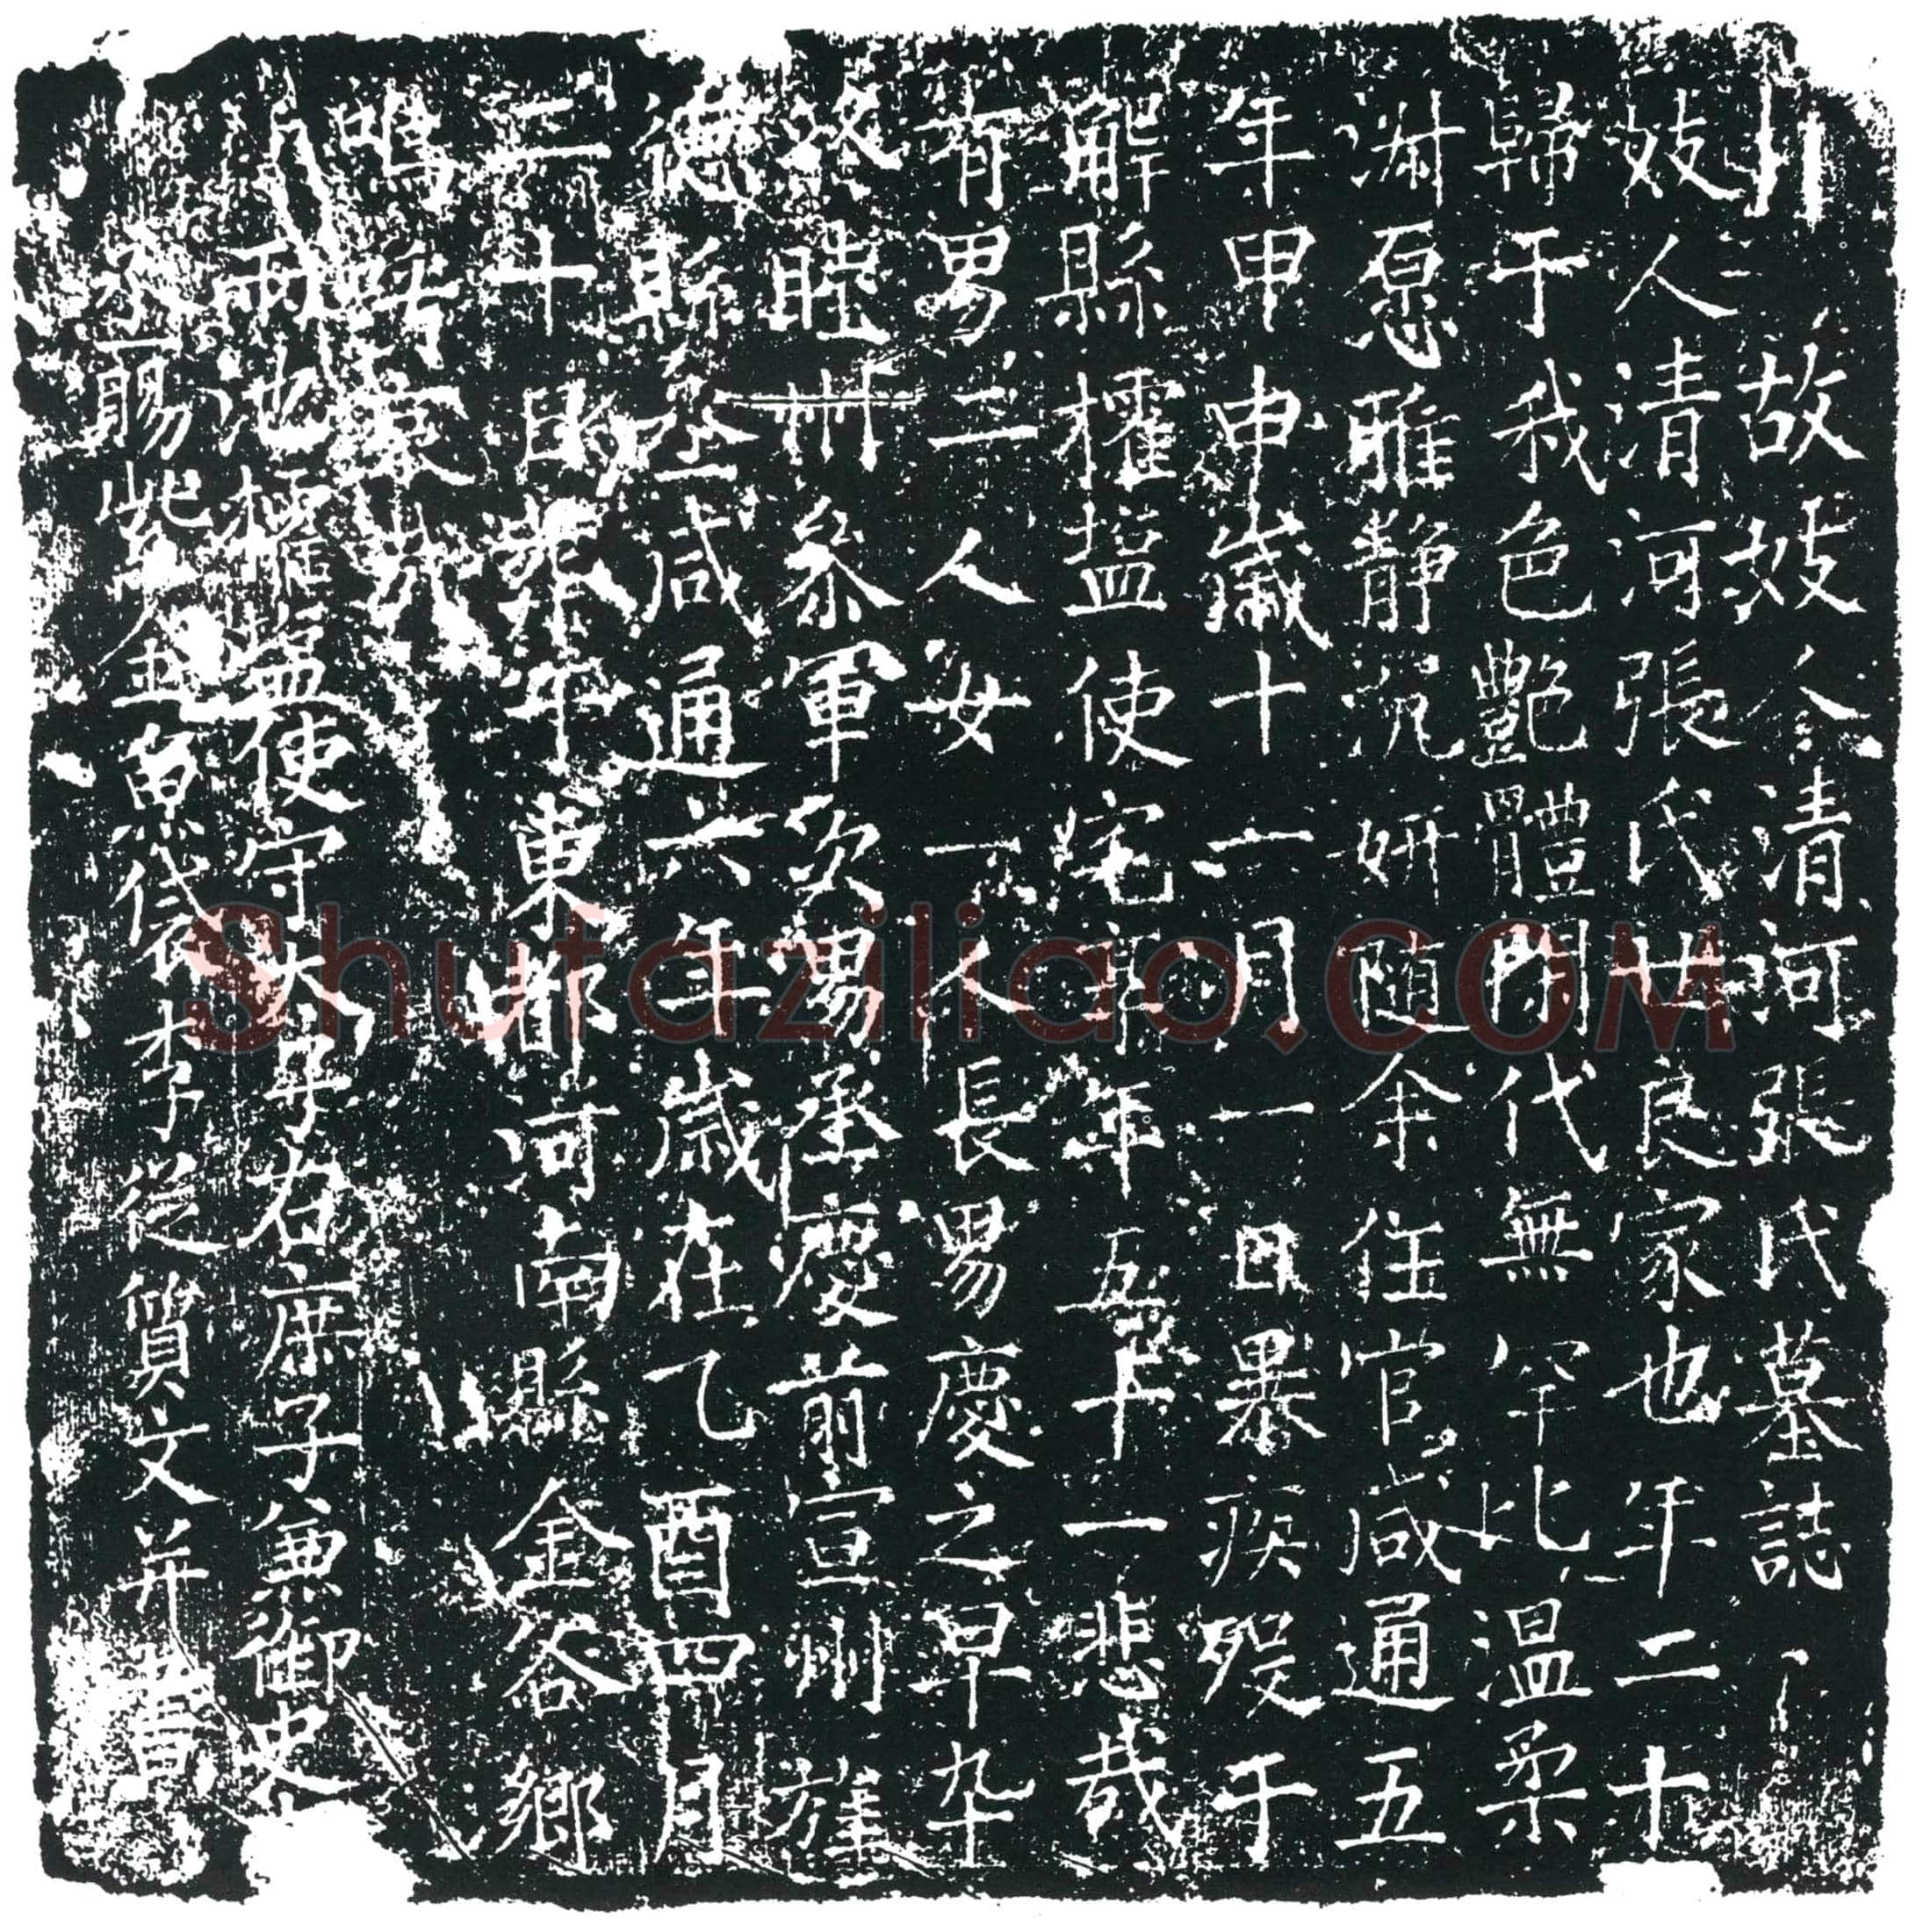 故妓人清河張氏墓誌
妓人清河張氏世良家也年二十
歸于我色艷體閑代無罕比溫柔
淑愿雅靜沉妍隨余任官咸通五
年甲申歲十一月一日暴疾歿于
解縣榷鹽使宅享年五十一悲哉
有男二人女一人長男慶之早卒
終睦州參軍次男承慶前宣州旌
德縣丞咸通六年歲在乙酉四月
十日葬于東都河南縣金谷鄉
嗚呼哀哉
兩池榷鹽使守太子右庶子兼御史
丞賜紫金魚袋李從質文并書
Shufaziliao.COM